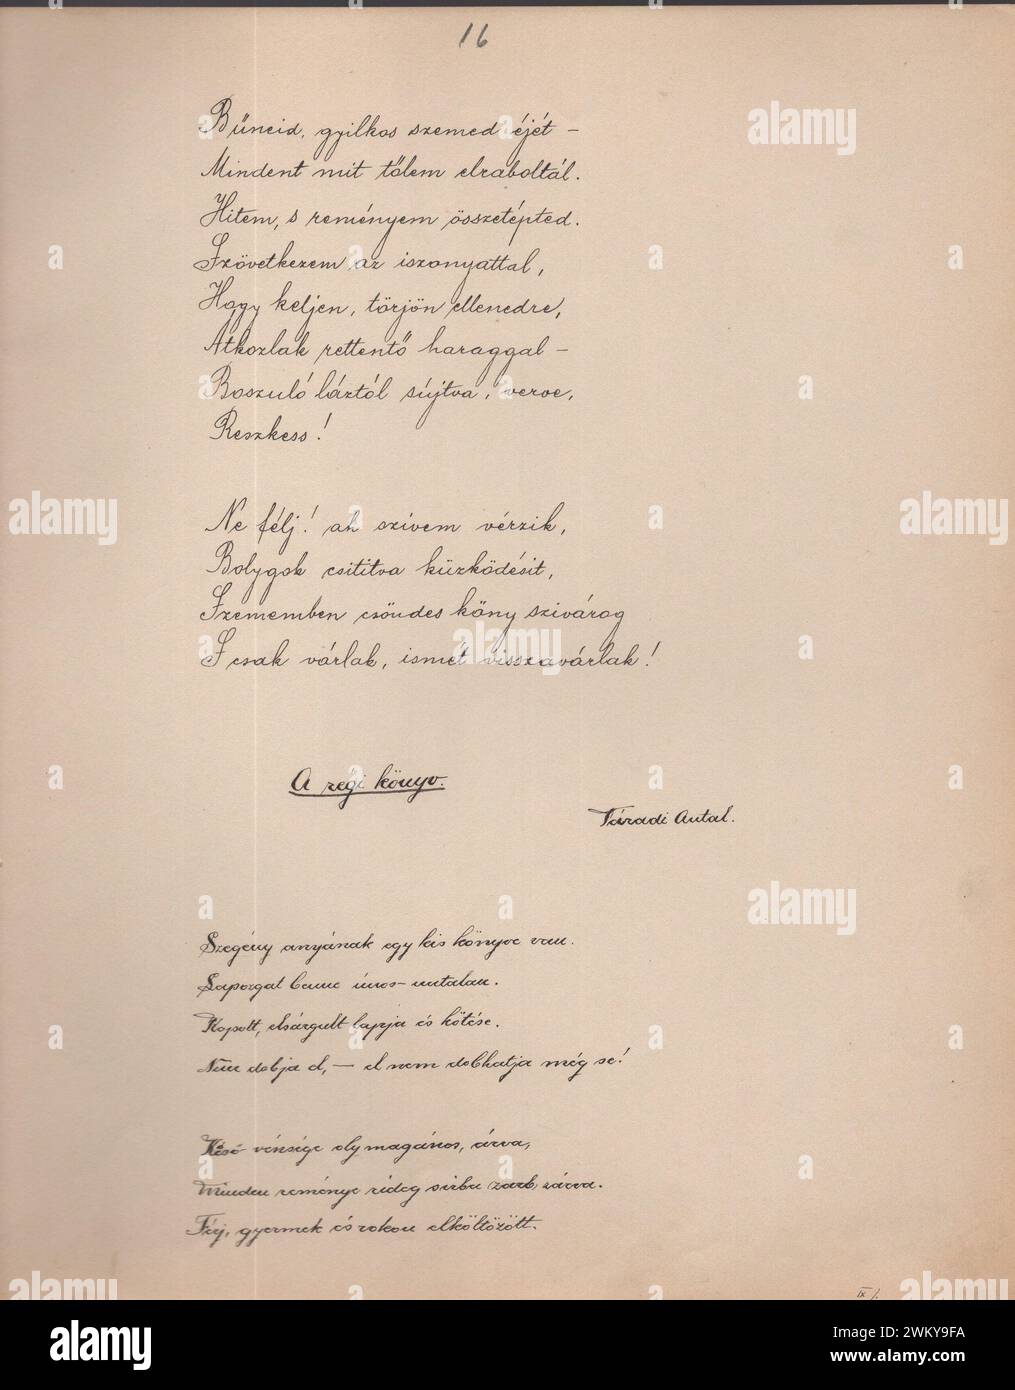 16
Bűneid, gyilkos szemed éjét –
Mindent mit tőlem elraboltál.
Hitem, s reményem összetépted.
Szövetkezem az iszonyattal,
Hogy keljen, törjön ellenedre,
Átkozlak rettentő haraggal –
Boszuló láztól sújtva, verve,
Reszkess!
Ne félj! ah szivem vérzik,
Bolygok csititva küzködésit,
Szememben csöndes köny szivárog
S csak várlak, ismét visszavárlak!
A régi könyv.
Váradi Antal.
Szegény anyának egy kis könyve van.
Lapozgat benne únos-untalan.
Kopott, elsárgult lapja és kötése.
Nem dobja el, – el nem dobhatja még se!
Késő vénsége oly magános, árva,
Minden reménye rideg sirba zárva.
Férj, gyermek és rokon elköltözött.
IX /.
alamy
Image ID: 2WKY9FA
www.alamy.com